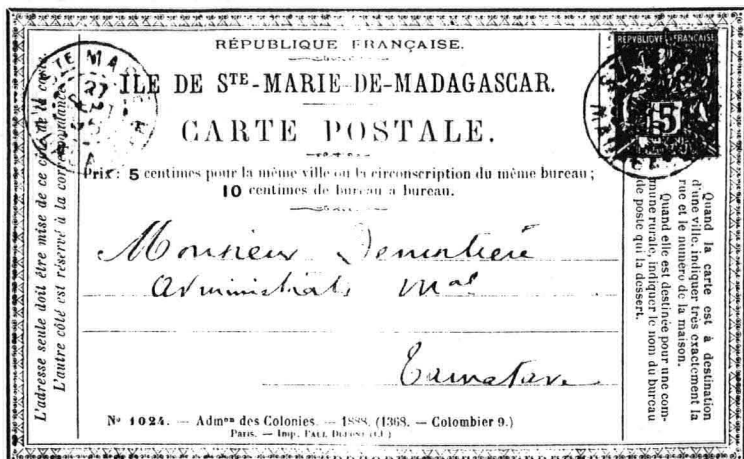 RÉPUBLIQUE FRANÇAISE.
ILE DE STE-MARIE-DE-MADAGASCAR.
CARTE POSTALE.
Prix: 5 centimes pour la même ville ou la circonscription du même bureau;
10 centimes de bureau à bureau.
Monsieur
Mal
Tamatave
No 1024. — Admon des Colonies. — 1888. (1368. — Colombier 9.)
Paris. — Imp. PAUL DUPONT
L'adresse seule doit être mise de ce côté de la carte.
L'autre côté est réservé à la correspondance.
RÉPUBLIQUE FRANÇAISE
5
Quand la carte est à destination
d'une ville, indiquer très exactement la
rue et le numéro de la maison.
Quand elle est destinée pour une com-
mune rurale, indiquer le nom du bureau
de poste qui la dessert.